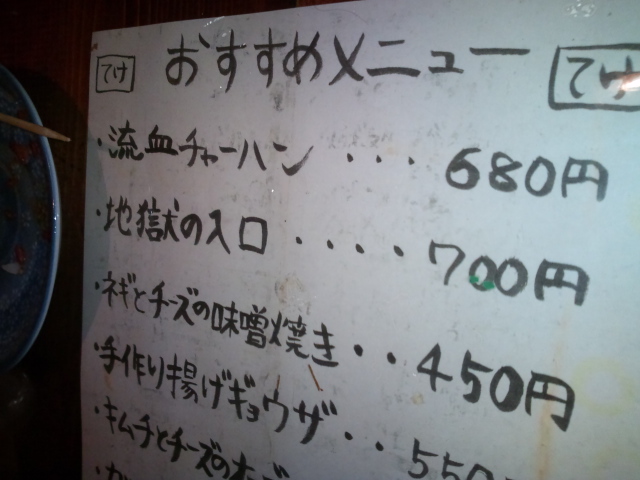 てけ おすすめメニュー てけ
・流血チャーハン ・・・ 680円
・地獄の入口 ・・・・ 700円
・ネギとチーズの味噌焼き ・・ 450円
・手作り揚げギョウザ ・・ 550
・キムチとチーズの